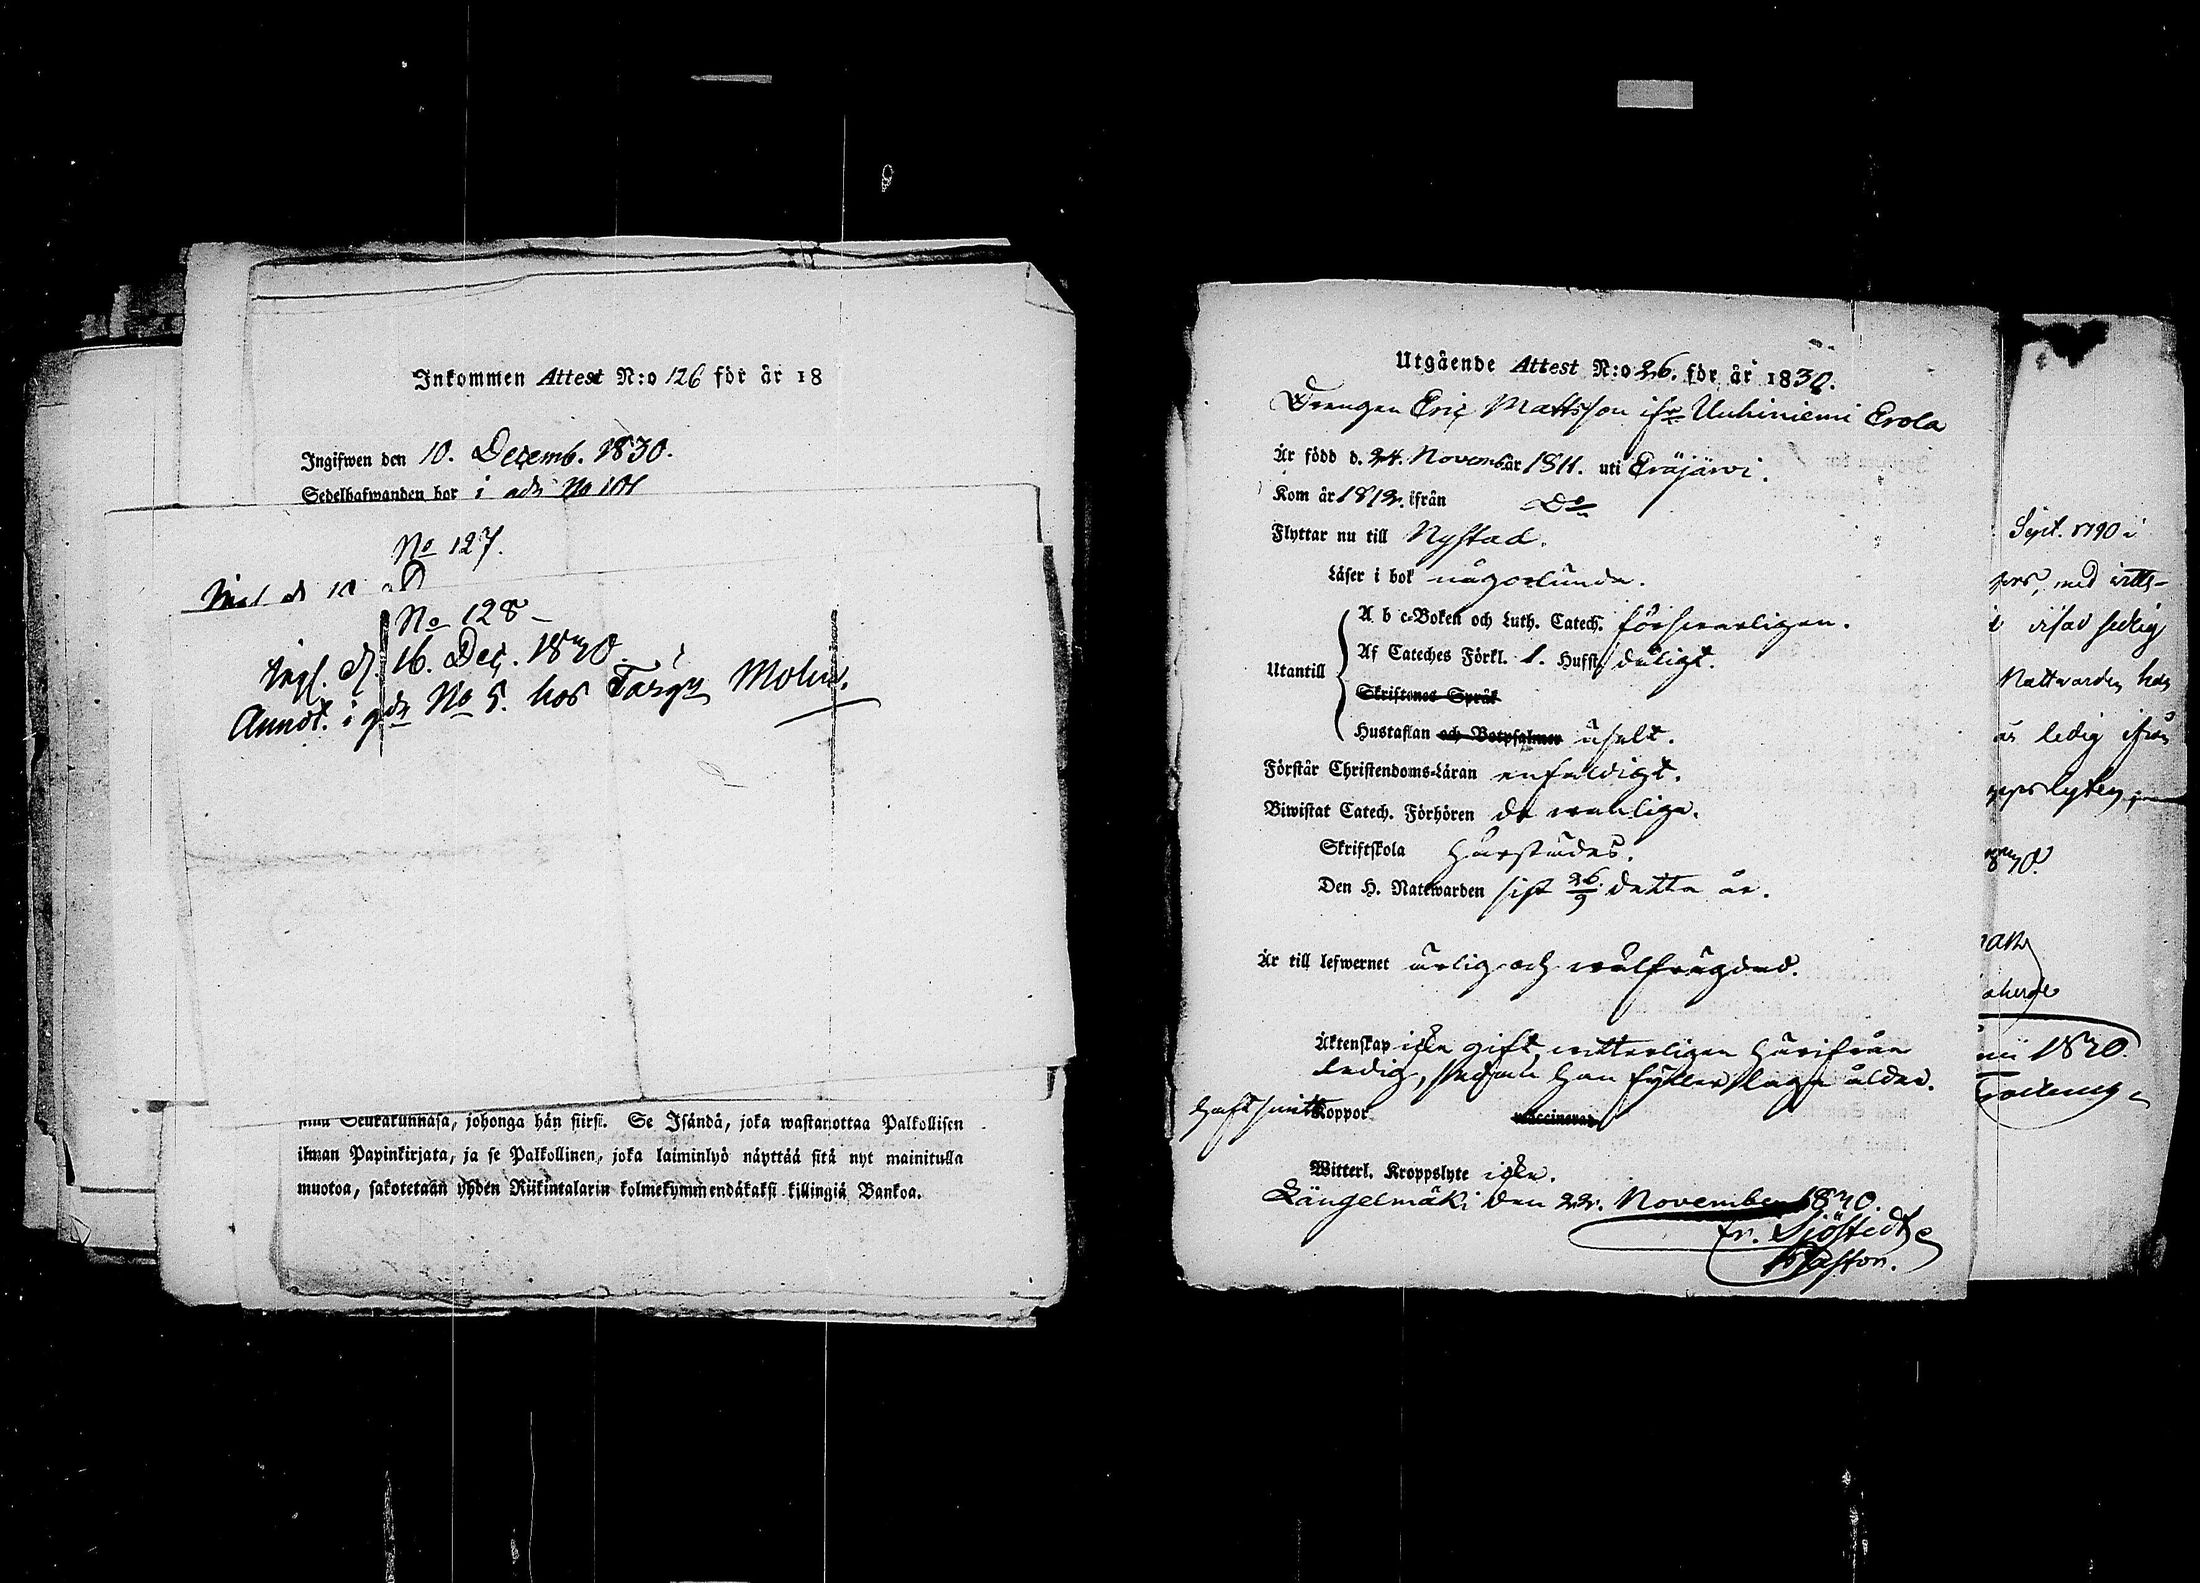 Inkommen Attest N:o 126 för år 18
Ingifwen den 10. Decemb. 1830.
Sedelhafwanden bor i No 101
No 127.
No 128
Ingl. d. 16. Dec. 1830
Annot. i No 5. hos Färg Molin.
Seurakunnasa, johonga hän siirsi. Se Isändä, joka wastanottaa Palkollisen
ilman Papinkirjata, ja se Palkollinen, joka laiminlyö näyttää sitä nyt mainitulla
muotoa, sakotetaan yhden Riikintalarin kolmekymmendäkaksi killingiä Bankoa.
Utgående Attest N:o 26. för år 1830.
Drengen Eric Mattsson ifr Uuhiniemi Erola
Är född d. 24. Novemb år 1811. uti Eräjärvi.
Kom år 1812. ifrån Do
Flyttar nu till Nystad.
Läser i bok någorlunda.
Utantill
A b c-Boken och Luth. Catech. försvarligen.
Af Cateches Förkl. 1. Hufst. dåligt.
Skriftenes Språk
Hustaflan och Botpsalmer uselt.
Förstår Christendoms-Läran enfaldigt.
Biwistat Catech. Förhören de vanliga.
Skriftskola härstädes.
Den H. Nattwarden sist 26/9 detta år.
Är till lefwernet ärlig och välfrägdad.
Äktenskap icke gift, vitterligen härifrån
ledig, sedan han fyller laga ålder.
haft smitt Koppor vaccinerad
Witterl. Kroppslyte icke.
Längelmäki den 22. November 1830.
Fr. Sjöstedt
Pastor.
Sept. 1790 i
med
i
Nattvarden
ledig ifrån
1830.
1830.